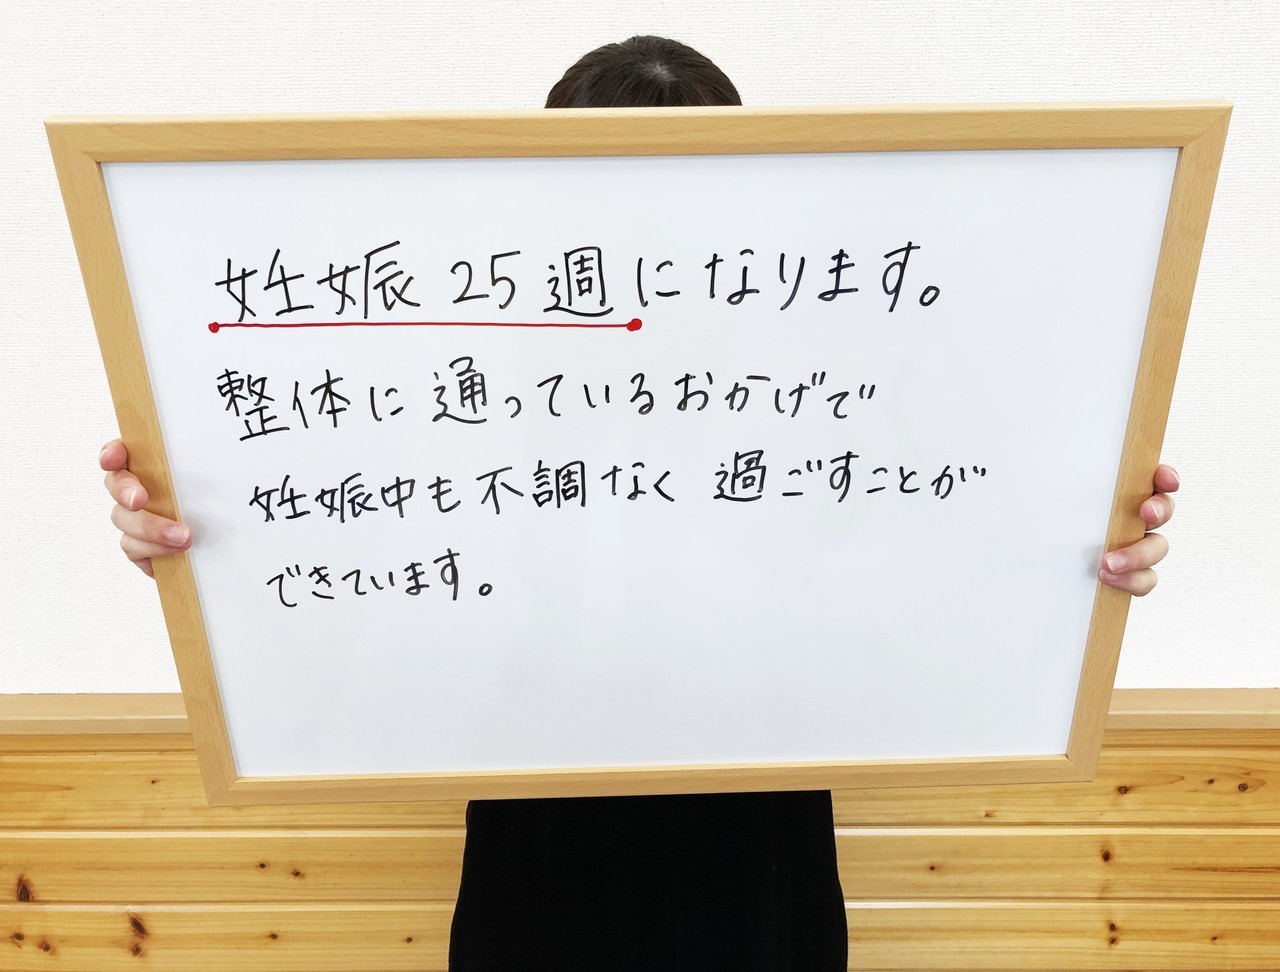 妊娠25週になります。
整体に通っているおかげで
妊娠中も不調なく過ごすことが
できています。